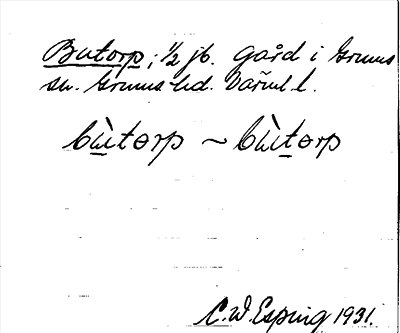 Butorp; 1/2 jb. Gård i Grums
sn. Grums hd. Värml l.
bùtorp ~ bùtorp
C.W. Esping 1931.